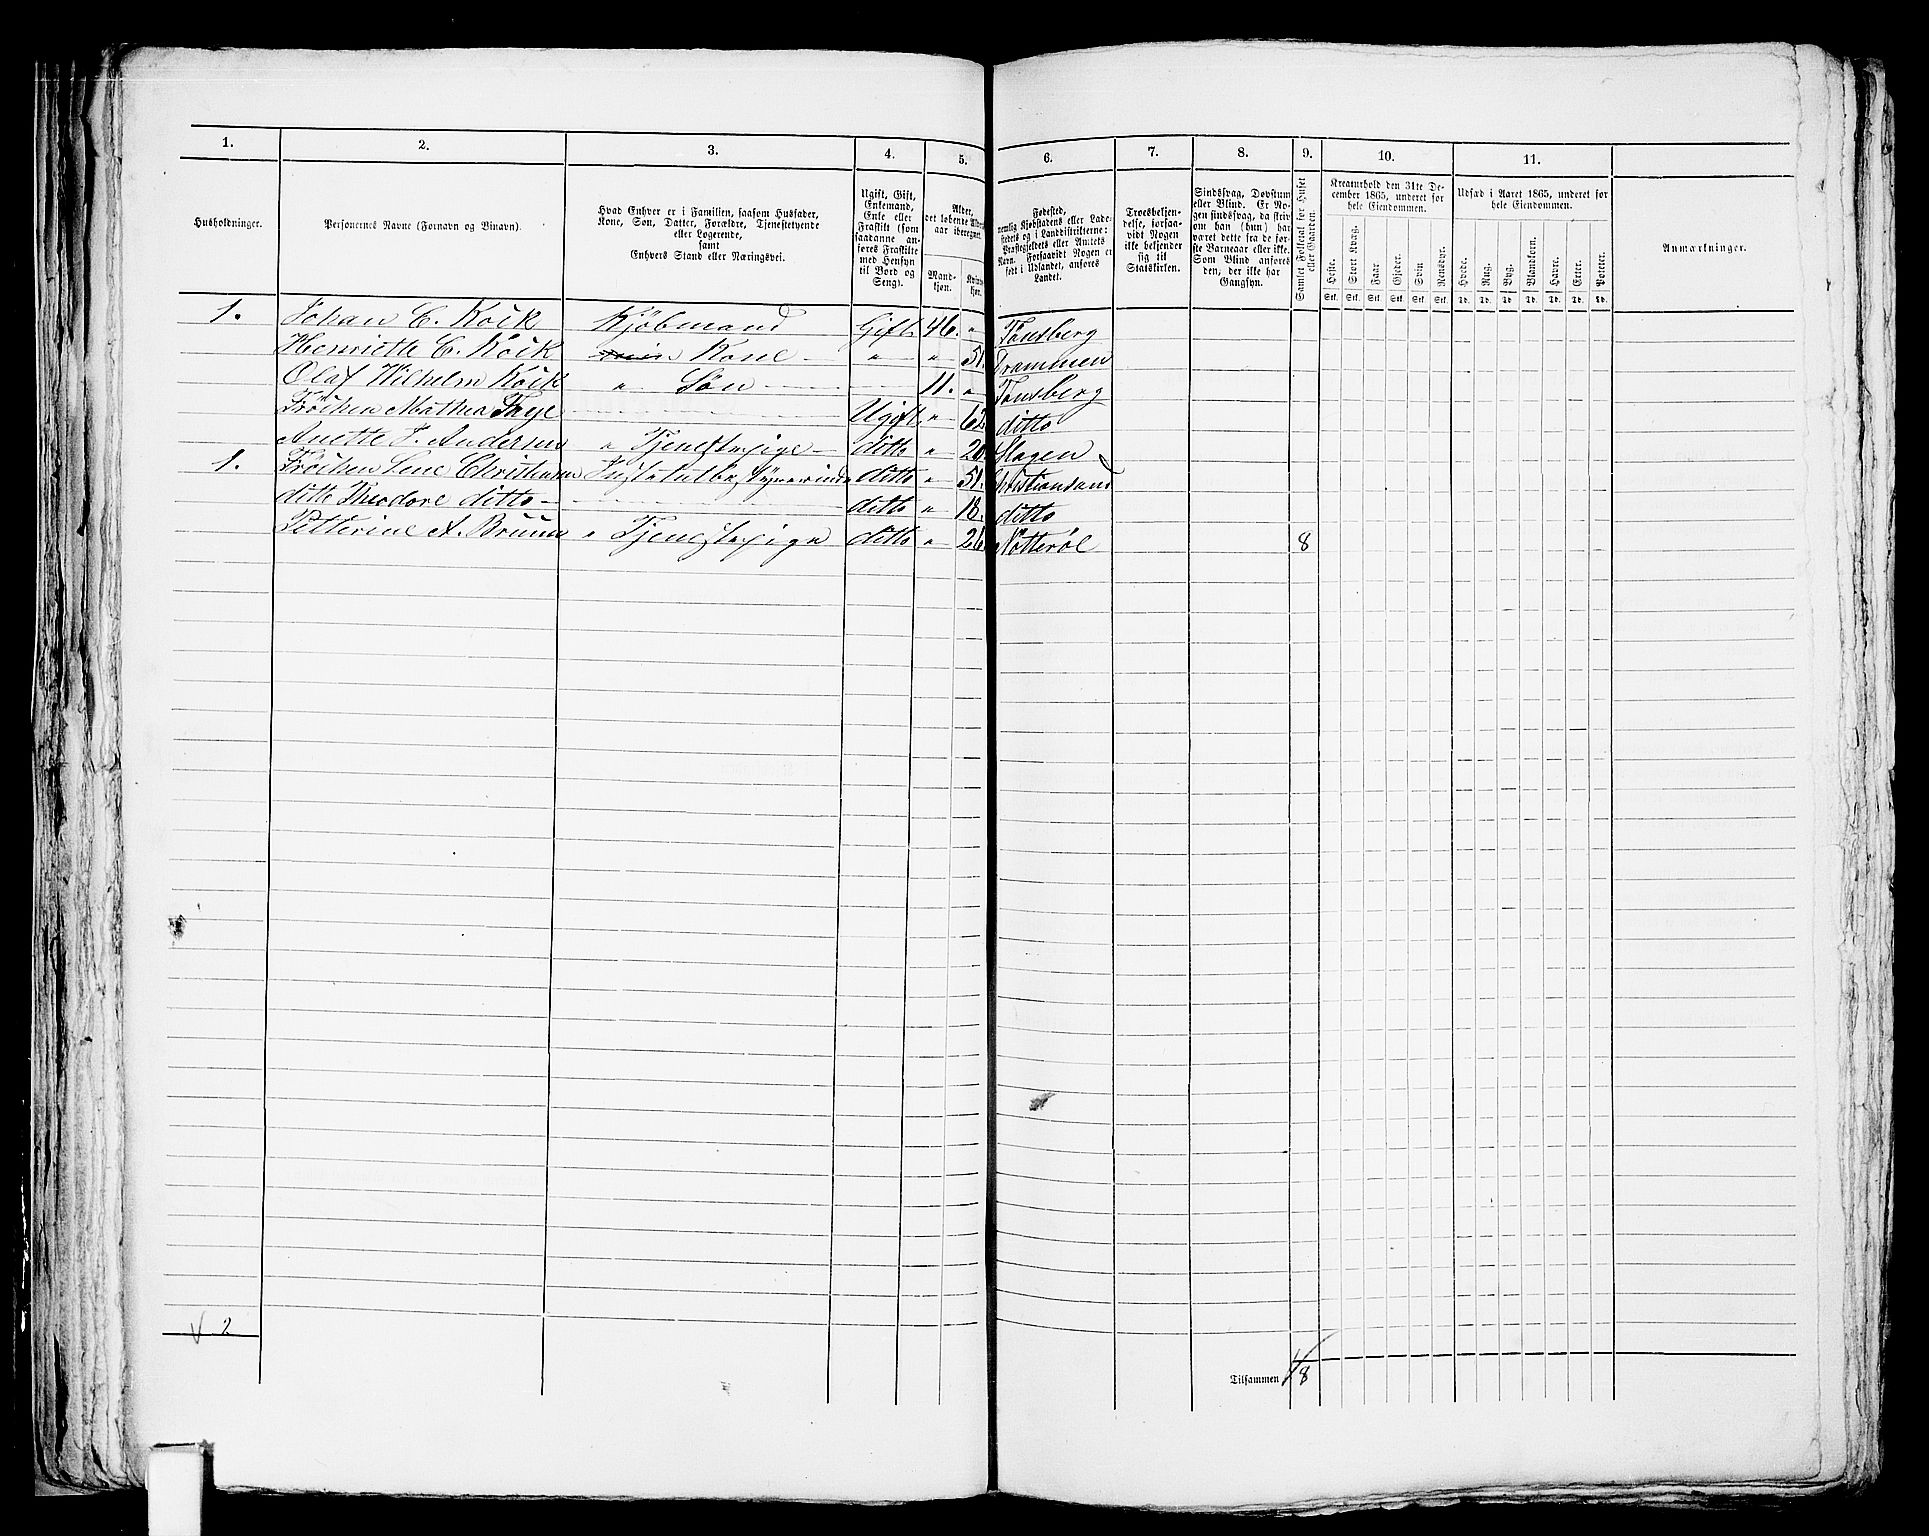 1. 2. 3. 4. 5. 6. 7. 8. 9. 10. 11.
Husholdninger.
Personernes Navne (Fornavn og Binavn).
Hvad Enhver er i Familien, saasom Husfader,
Kone, Søn, Datter, Forældre, Tjenestetyende
eller Logerende,
samt
Enhvers Stand eller Næringsvei.
Ugift, Gift,
Enkemand,
Enke eller
Fraskilt (som
saadanne an-
føres Fraskilte
med Hensyn
til Bord og
Seng).
Alder,
det løbende Alders-
aar iberegnet.
Mand-
kjøn.
Kvinde-
kjøn.
Fødested,
nemlig Kjøbstadens eller Lade-
stedets og i Landdistrikterne:
Præstegjeldets eller Amtets
Navn. Forsaavidt Nogen er
født i Udlandet, anføres
Landet.
Troesbekjen-
delse, forsaa-
vidt Nogen
ikke bekjender
sig til
Statskirken.
Sindssvag, Døvstum
eller Blind. Er No-
gen sindssvag, da skriv
om han (hun) har
været dette fra de før-
ste Barneaar eller ikke.
Som Blind anføres
den, der ikke har
Gangsyn.
Samlet Folketal for Huset
eller Gaarden.
Kreaturhold den 31te De-
cember 1865, underet for
hele Eiendommen.
Heste. Stort Kvæg. Faar. Gjeder. Svin. Rensdyr.
Stk. Stk. Stk. Stk. Stk. Stk.
Udsæd i Aaret 1865, underet for
hele Eiendommen.
Hvede. Rug. Byg. Blandkorn. Havre. Erter. Poteter.
Td. Td. Td. Td. Td. Td. Td.
Anmærkninger.
1. Johan C. Kock Kjøbmand Gift 46. " Tønsberg
Henriette C. Kock Kone " " 51. Drammen
Olaf Wilhelm Kock " Søn 11. " Tønsberg
Frøiken Mathea Ugift " 62 ditto
Anette J. Andersen " Tjenestepige ditto " 20 Slagen
1. Frøiken Lene Christensen ditto " 51. Christiansand
ditto Theodore ditto ditto " 18. ditto
Petterine A. Bruun " Tjenestepige ditto " 26 Nøtterøe 8
2
Tilsammen 8